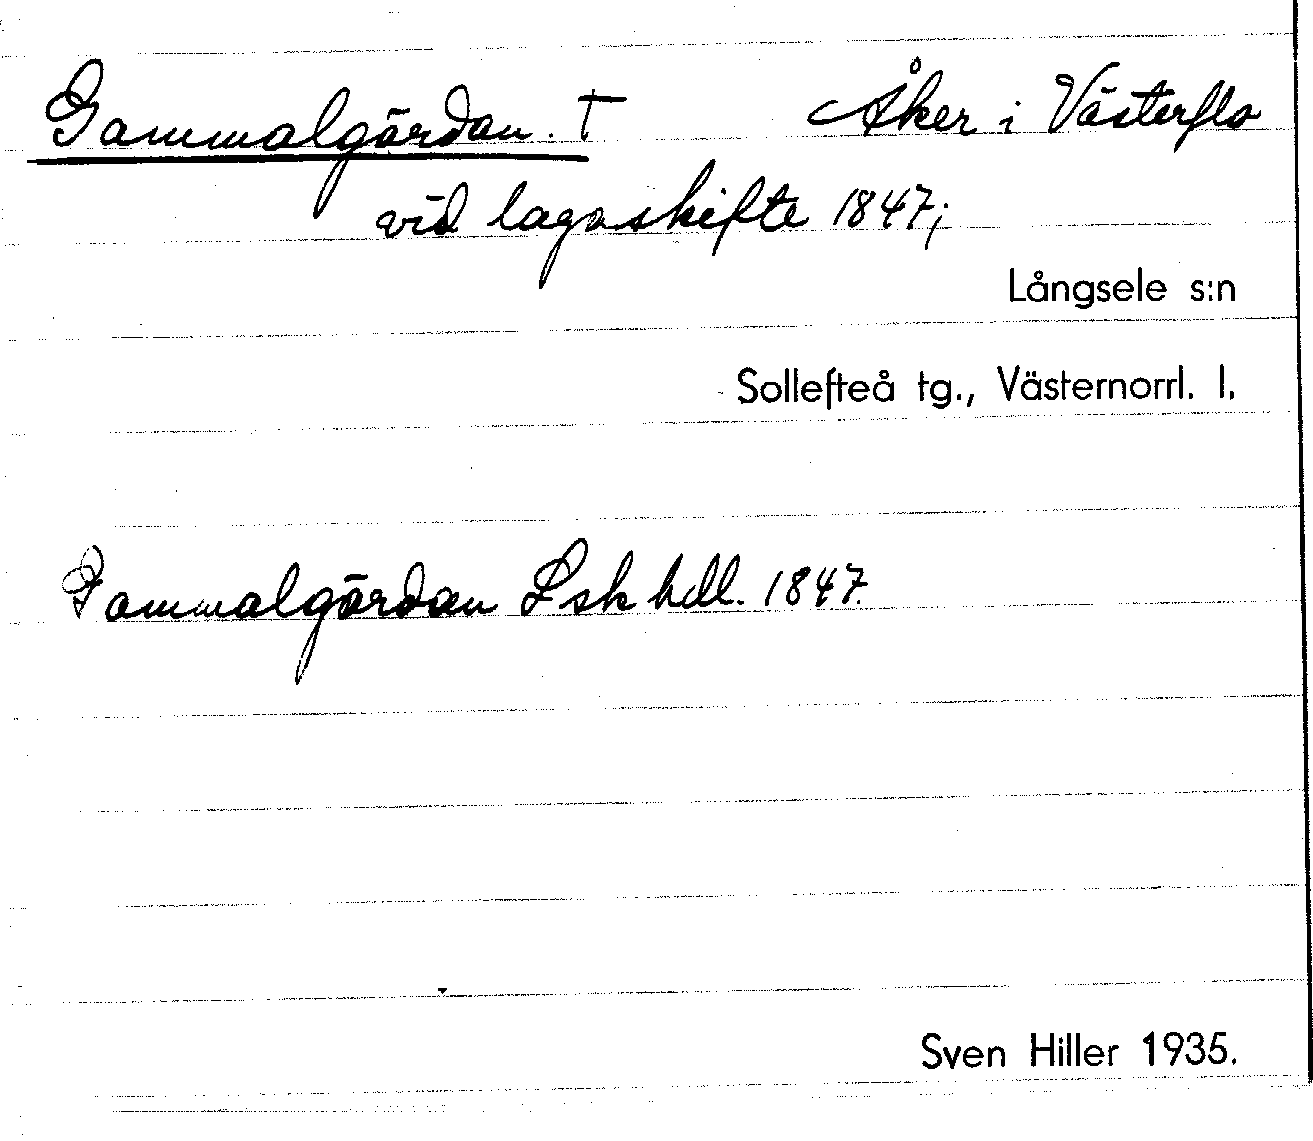 Gammalgärdan. † Åker i Västerflo
vid lagaskifte 1847;
Långsele s:n
Sollefteå tg., Västernorrl. l.
Gammalgärdan Lsk hdl. 1847.
Sven Hiller 1935.